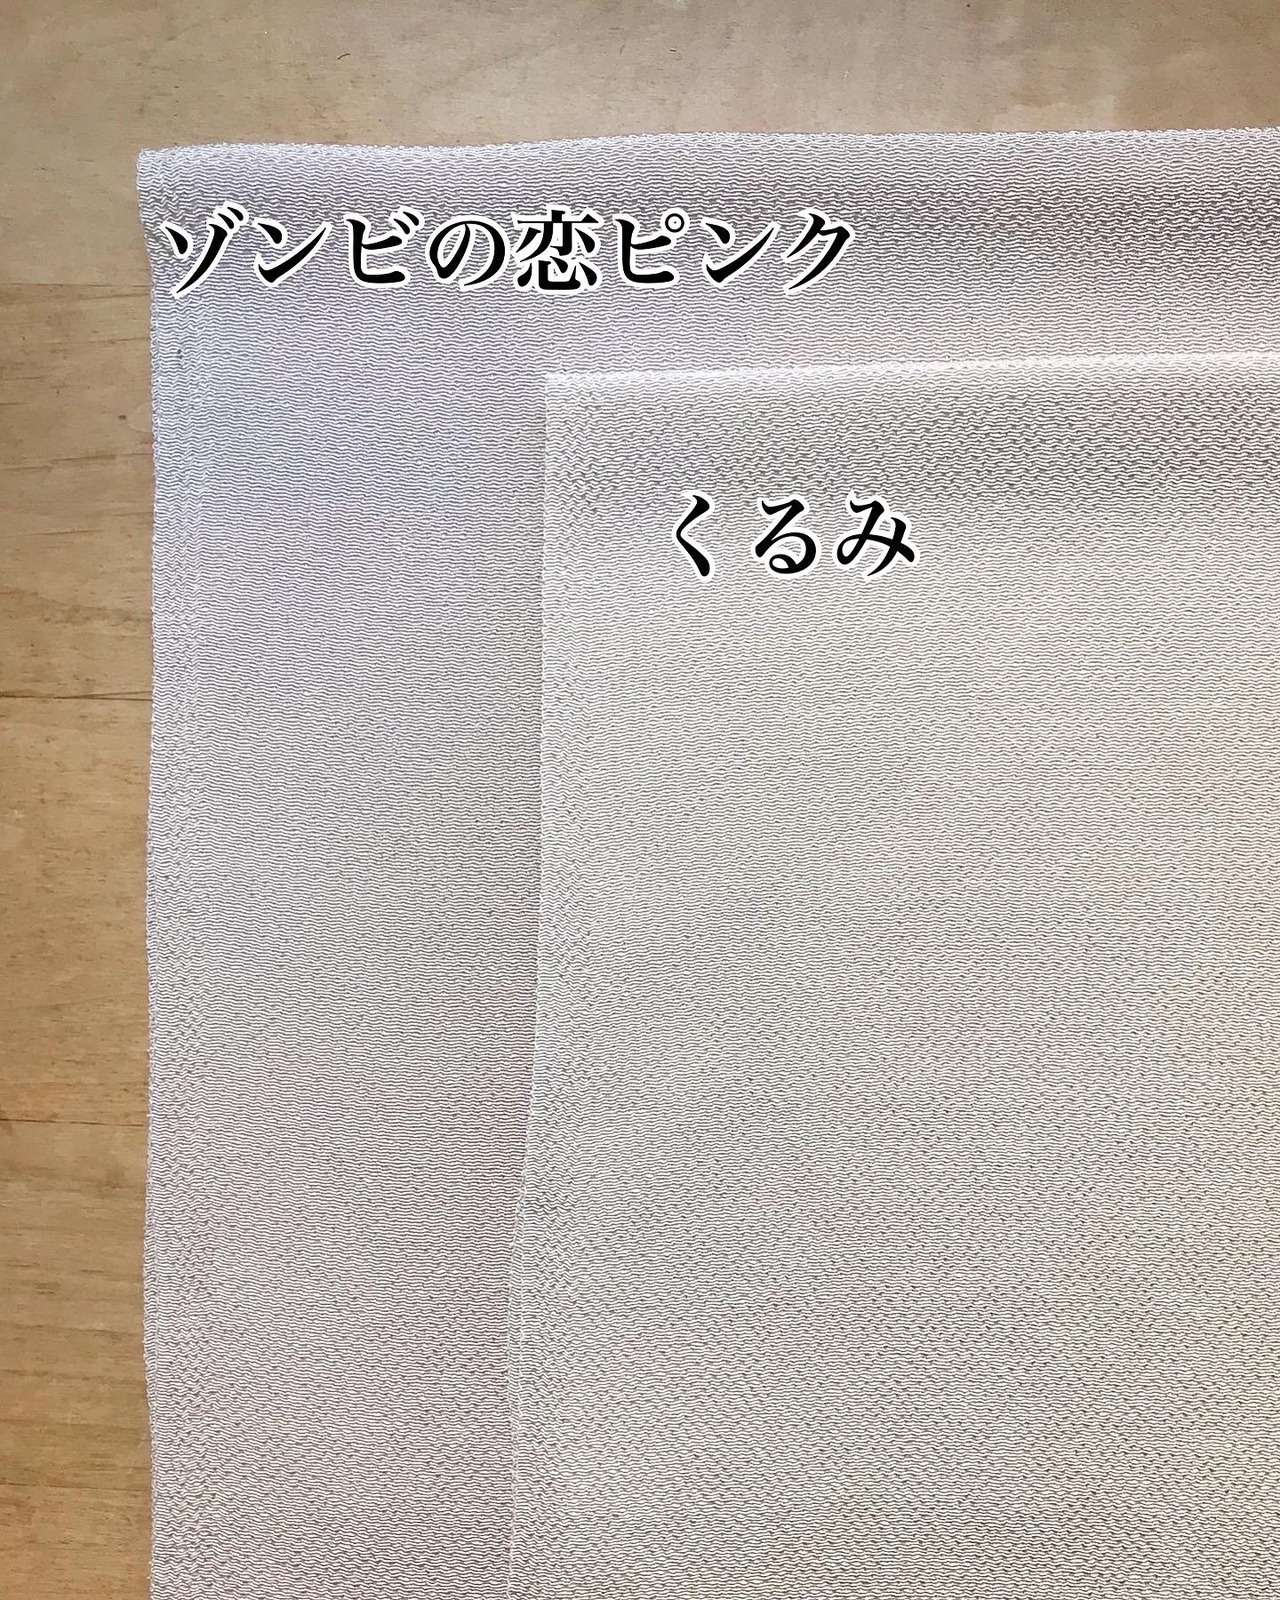 ゾンビの恋ピンク
くるみ